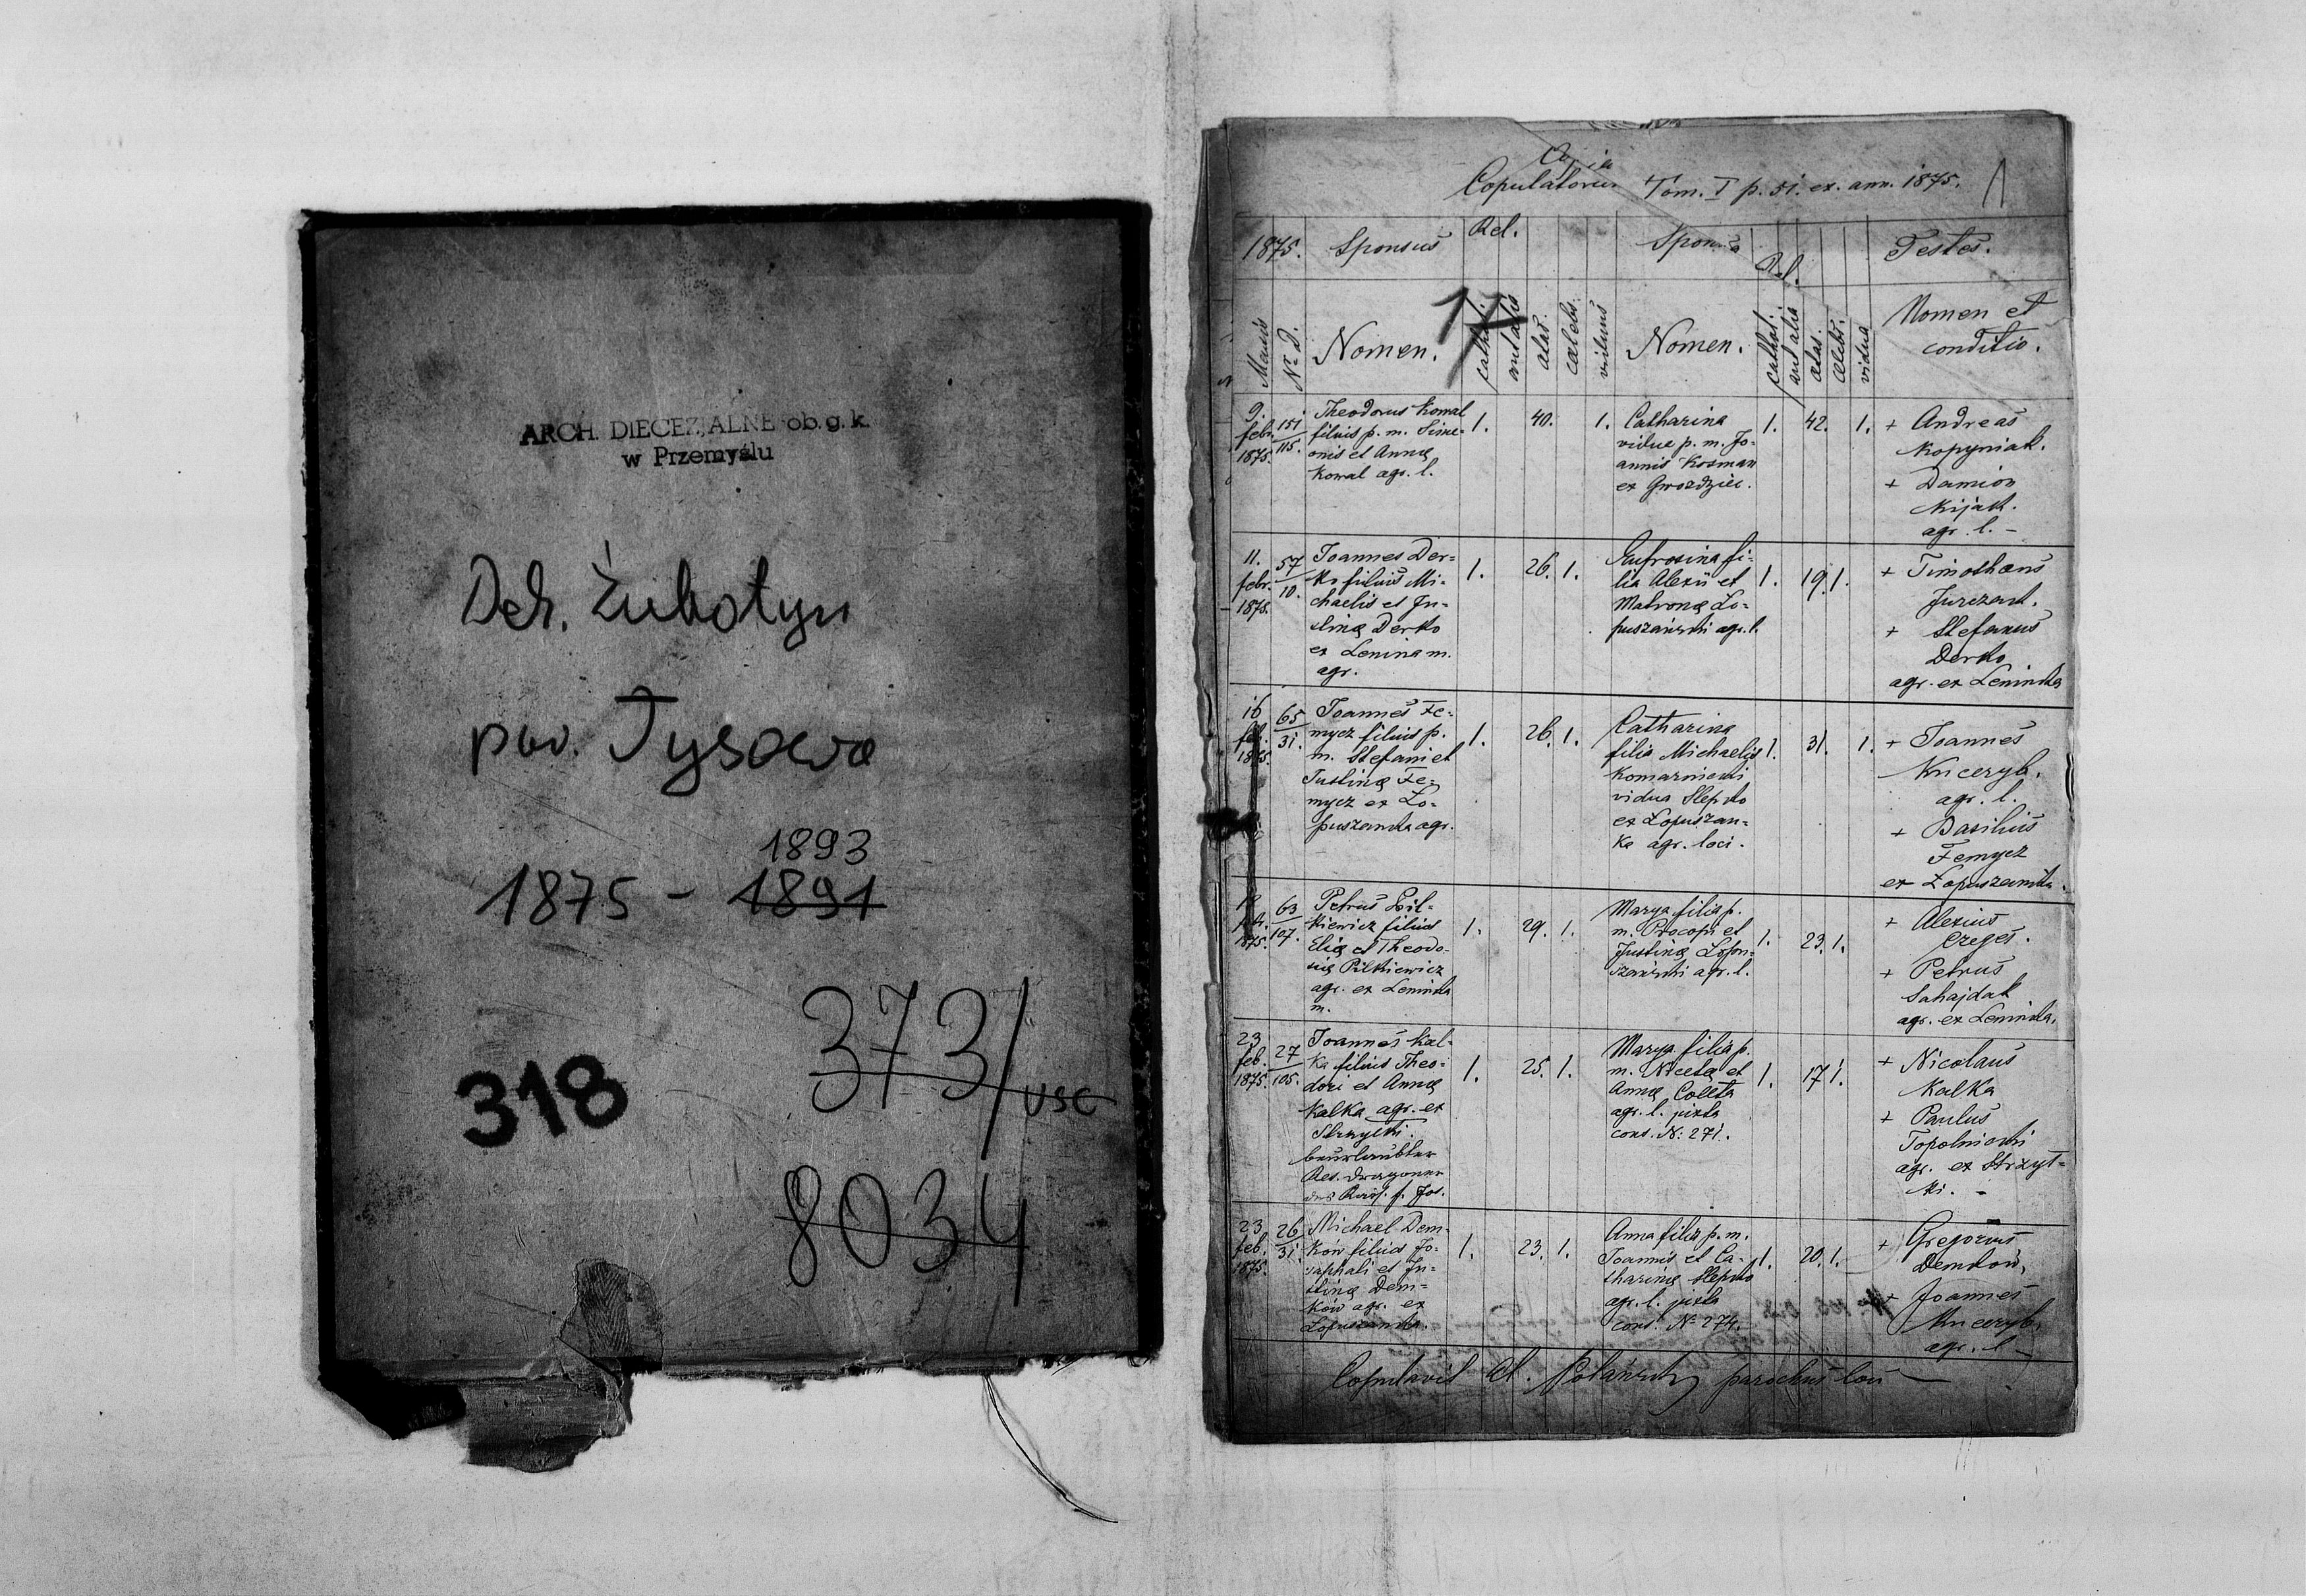 ARCH. DIECEZJALNE ob. g. k.
w Przemyślu
Dek. Żukotyn
par. Tysowa
1893
1875 - 1891
318
373/
USC
8034
Copia
Copulatorum Tom. I p. 51. ex. ann. 1875.
1
1875.
Sponsus
Rel.
Sponsa
Rel.
Testes.
17
Mensis
Nº D.
Nomen.
cathol.
aut alia
aetas.
caelebs.
viduus
Nomen.
cathol.
aut alia
aetas.
caelebs.
vidua
Nomen et
conditio.
9.
febr.
1875.
151
115.
Theodorus Kowal
filius p. m. Sime-
onis et Annę
Kowal agr. l.
1.
40.
1.
Catharina
vidua p. m. Jo-
annis Kosman
ex Gwozdziec.
1.
42.
1.
+ Andreas
Kopyniak.
+ Damian
Kijak.
agr. l. -
11.
febr.
1875.
57
10.
Joannes Der=
ko filius Mi-
chaelis et Ju-
stinę Derko
ex Lenina m.
agr.
1.
26.
1.
Eufrosina fi-
lia Alexii et
Matronę Ło-
puszański agr. l.
1.
19.
1.
+ Timotheus
Jurczak.
+ Stefanus
Derko
agr. ex Leninka
16
feb.
1875.
65
31.
Joannes Fe-
mycz filius p.
m. Stefani et
Justinę Fe-
mycz ex Ło-
puszanka agr.
1.
26.
1.
Catharina
filia Michaelis
Komarnicki
vidua Slepko
ex Łopuszan-
ka agr. loci.
1.
31.
1.
+ Joannes
Kuceryb.
agr. l.
+ Basilius
Femycz
ex Łopuszanka.
1875.
63
107.
Petrus Pil-
kiewicz filius
Elię et Theodo-
się Pilkiewicz
agr. ex Leninka
m.
1.
29.
1.
Marya filia p.
m. Procopii et
Justinę Łopu-
szański agr. l.
1.
23.
1.
+ Alexius
+ Petrus
Sahajdak
agr. ex Leninka.
23
feb.
1875.
27
105.
Joannes Kal-
ka filius Theo-
dori et Annę
Kalka agr. ex
Strzyłki.
beurlaubter
Res. Dragoner
des Kais. f. Jos.
1.
25.
1.
Marya filia p.
m. Nicetę et
Annę Coleta
agr. l. juxta
cons. N: 271.
1.
17
1.
+ Nicolaus
Kalka
+ Paulus
Topolnicki
agr. ex Strzył=
ki. -
23.
feb.
1875.
26
31
Michael Dem-
ków filius Jo-
saphati et Ju-
stinę Dem-
ków agr. ex
Łopuszanka.
1.
23.
1.
Anna filia p. m.
Joannis et Ca-
tharinę Slepko
agr. l. juxta
cons. Nº 274.
1.
20.
1.
+ Gregorius
Demków,
+ Joannes
Kuceryb.
agr. l -
Copulavit Al. Polański parochus loci